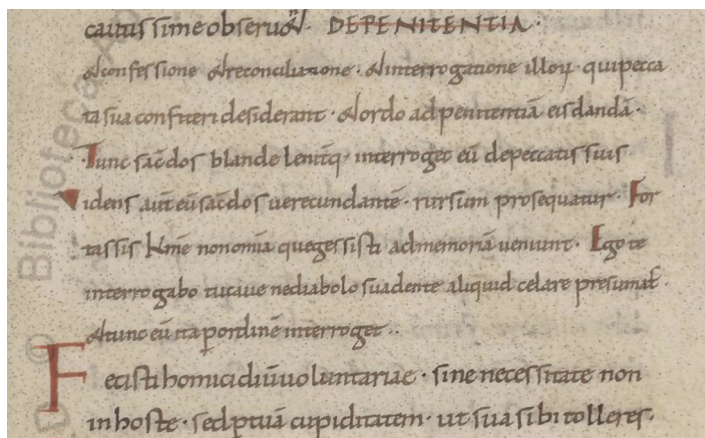 cautissime obseruet. DE PENITENTIA.
et confessione et reconciliatione. et interrogatione illoꝝ qui pecca
ta sua confiteri desiderant. et ordo ad penitentiā eis dandā.
Tunc sac̄dos blande leniterq; interroget eū de peccatis suis.
Videns aut̄ eū sac̄dos uerecundantē. rursum prosequatur. For
tassis kmē non om̄ia que gessisti ad memoriā ueniunt. Ego te
interrogabo tu caue ne diabolo suadente aliquid celare presumas.
et tunc eū ita ꝑ ordinē interroget.
Fecisti homicidiū uoluntariae. sine necessitate non
in hoste. sed ꝓ tuā cupiditatem. ut sua sibi tolleres.
D © Biblioteca